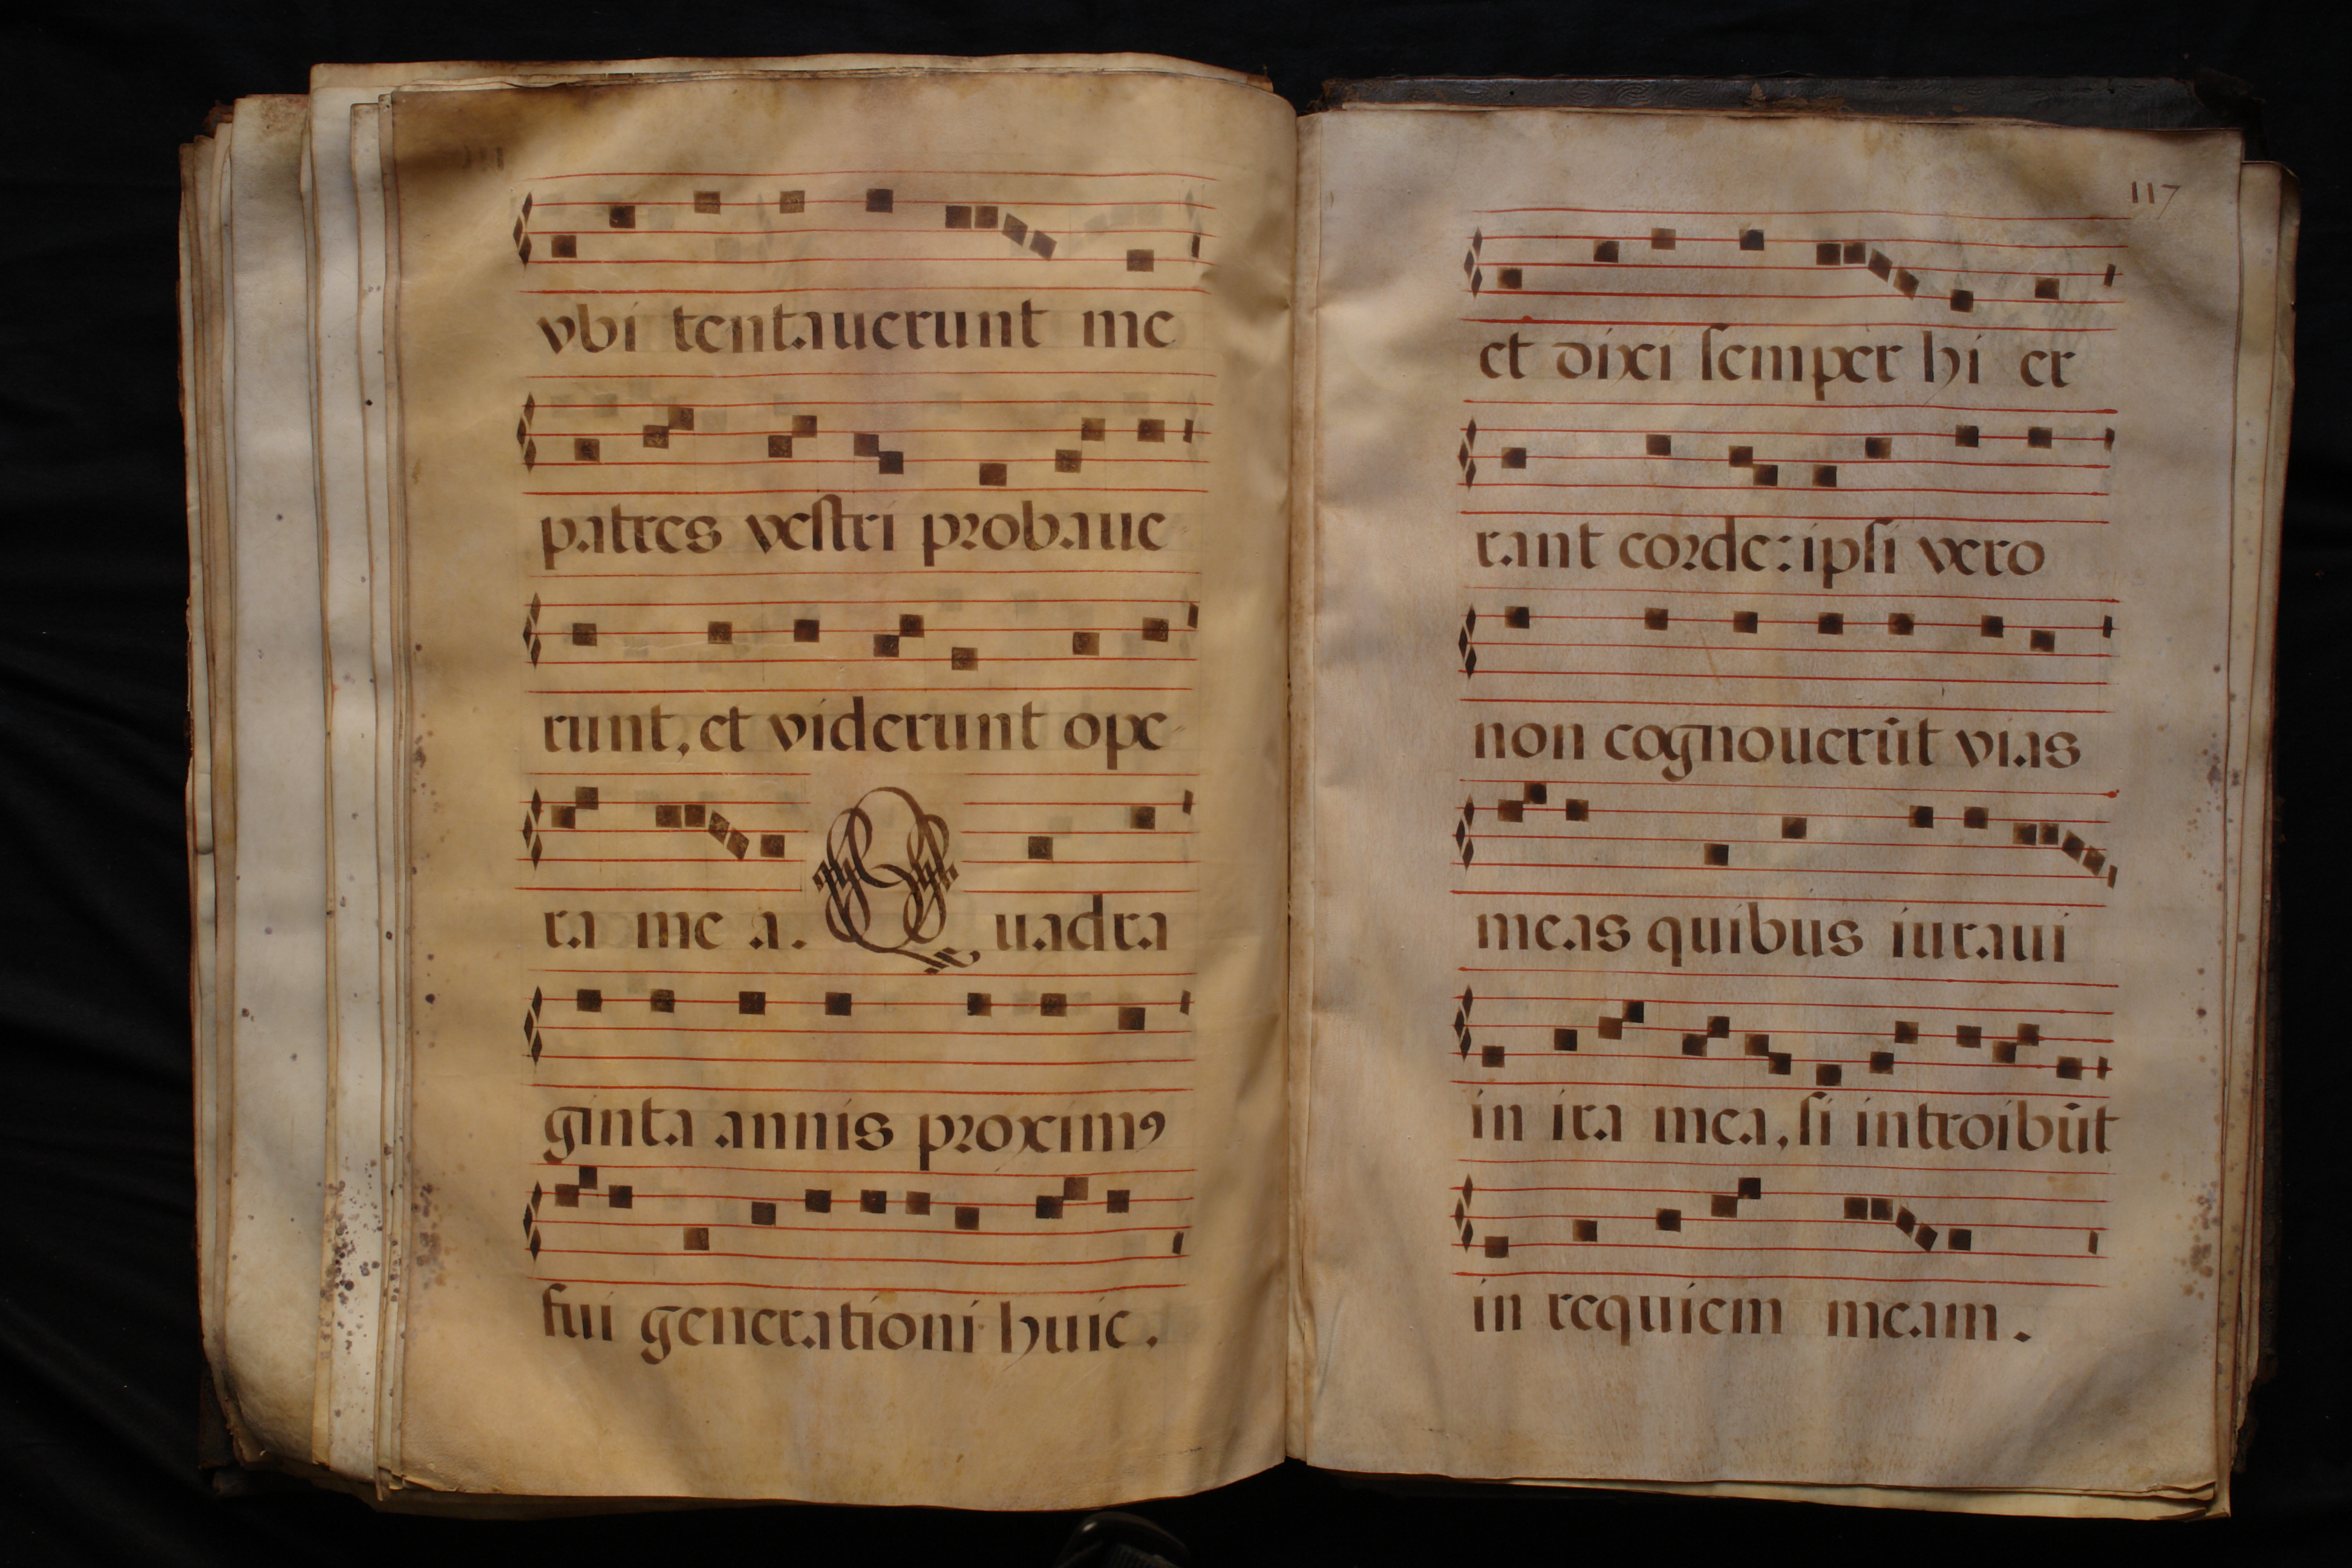 vbi tentauerunt me
patres vestri probaue
runt, et viderunt ope
ra me a. Quadra
ginta annis proximꝰ
fui generationi huic.
117
et dixi semper hi er
rant corde: ipsi vero
non cognouerūt vias
meas quibus iuraui
in ira mea, si introibūt
in requiem meam.